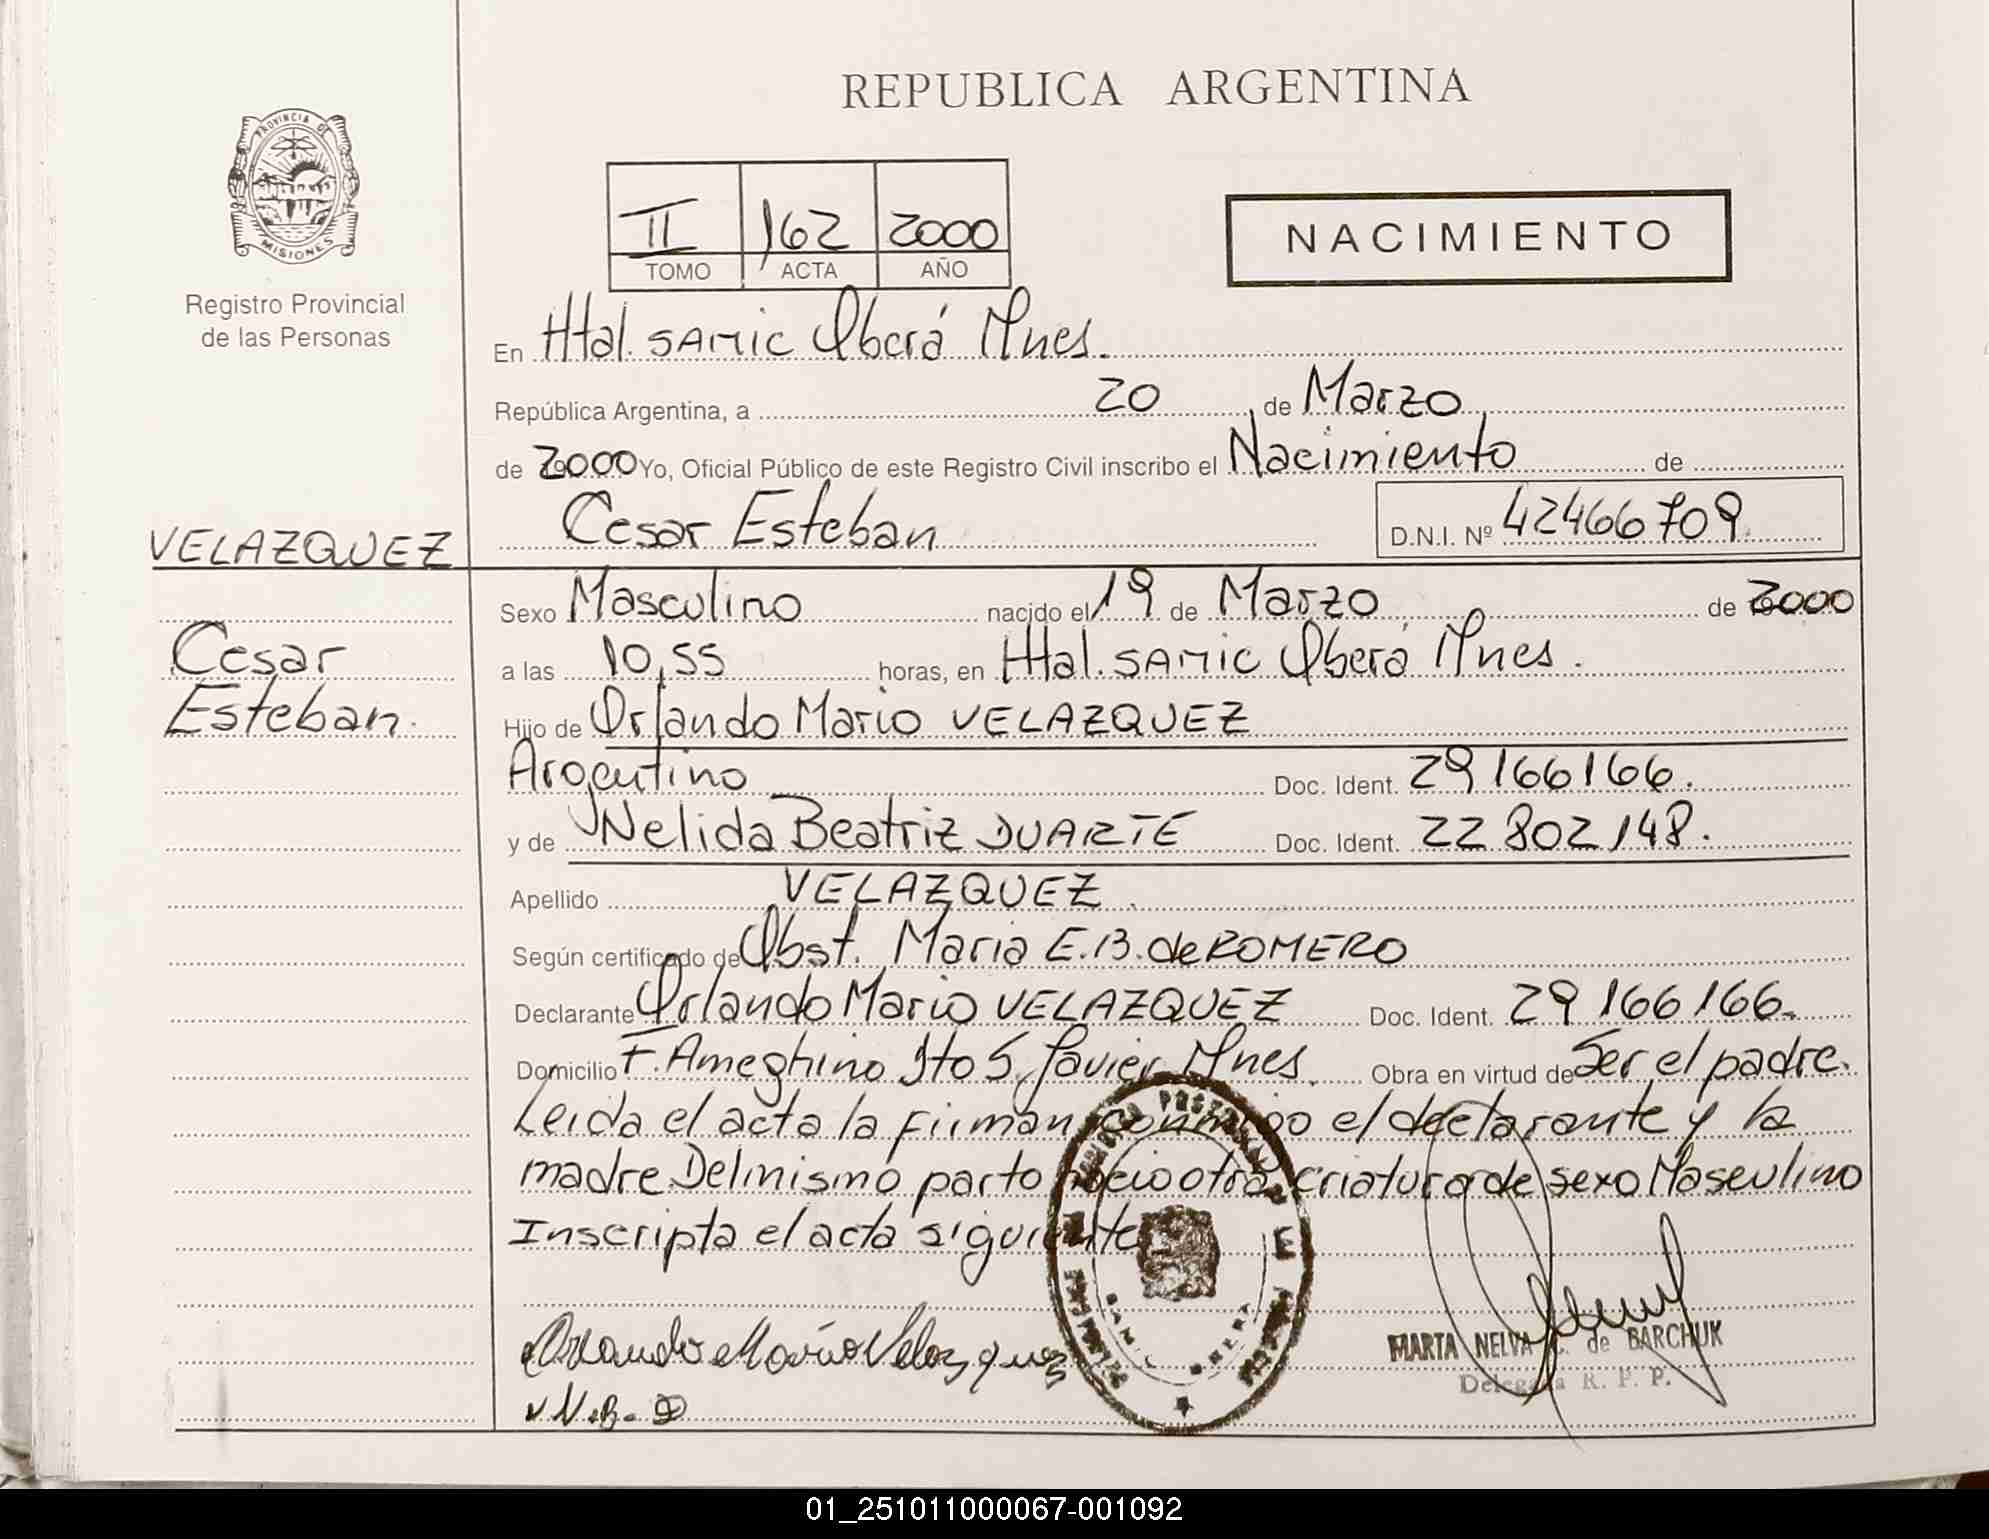 REPUBLICA ARGENTINA
PROVINCIA DE
MISIONES
Registro Provincial
de las Personas
II 162 2000
TOMO ACTA AÑO
NACIMIENTO
En Htal. SAMIC Oberá Mnes.
República Argentina, a 20 de Marzo
de 2000 Yo, Oficial Público de este Registro Civil inscribo el Nacimiento de
Cesar Esteban D.N.I. Nº 42466709
VELAZQUEZ
Cesar
Esteban.
Sexo Masculino nacido el 19 de Marzo de 2000
a las 10,55 horas, en Htal. SAMIC Oberá Mnes.
Hijo de Orlando Mario VELAZQUEZ
Argentino Doc. Ident. 29166166.
y de Nelida Beatriz DUARTE Doc. Ident. 22802148.
Apellido VELAZQUEZ.
Según certificado de Obst. Maria E.B. de ROMERO
Declarante Orlando Mario VELAZQUEZ Doc. Ident. 29166166.
Domicilio F. Ameghino Sto S. Javier Mnes. Obra en virtud de Ser el padre.
Leida el acta la firman conmigo el declarante y la
madre. Del mismo parto nacio otra criatura de sexo Masculino
Inscripta el acta siguiente
Orlando Mario Velazquez
N.B.D
SAMIC OBERA
MARTA NELVA C. de BARCHUK
Delegada R. P. P.
01_251011000067-001092